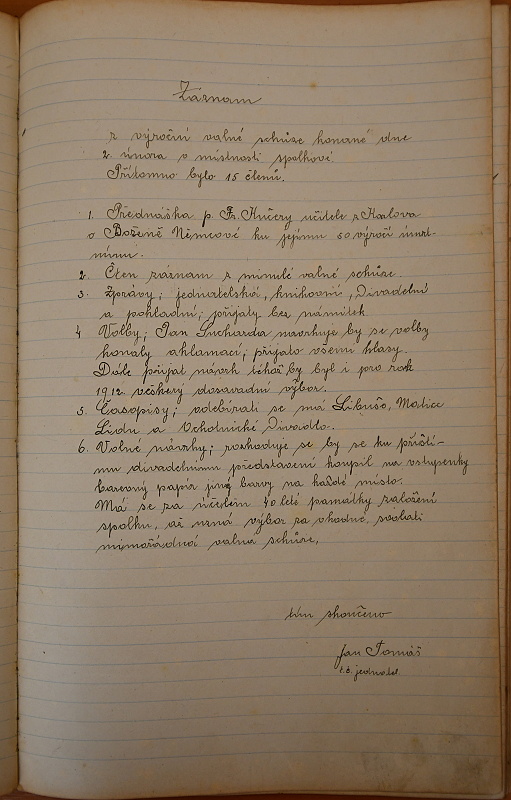 Záznam
z výroční valné schůze konané dne
2. února v místnosti spolkové.
Přítomno bylo 15 členů.
1. Přednáška p. Fr. Kučery učitele z Kalova
o Boženě Němcové ku jejímu 50 výročí úmrt-
mímu.
2. Čten záznam z minulé valné schůze.
3. Zprávy; jednatelská, knihovní, Divadelní
a pokladní; přijaty bez námitek
4 Volby; Jan Sucharda navrhuje by se volby
konaly aklamací; přijato všemi hlasy.
Dále přijat návrh téhož by byl i pro rok
1912 veškerý dosavadní výbor.
5. Časopisy; odebírati se má Libuše, Matice
Lidu a Ochotnické Divadlo.
6. Volné návrhy; rozhoduje se by se ku příští-
mu divadelnímu představení koupil na vstupenky
barevný papír jiné barvy na každé místo.
Má se za účelem 40 leté památky založení
spolku, až uzná výbor za vhodné, svolati
mimořádná valná schůze,
tím skončeno
Jan Tomáš
t.č. jednatel.